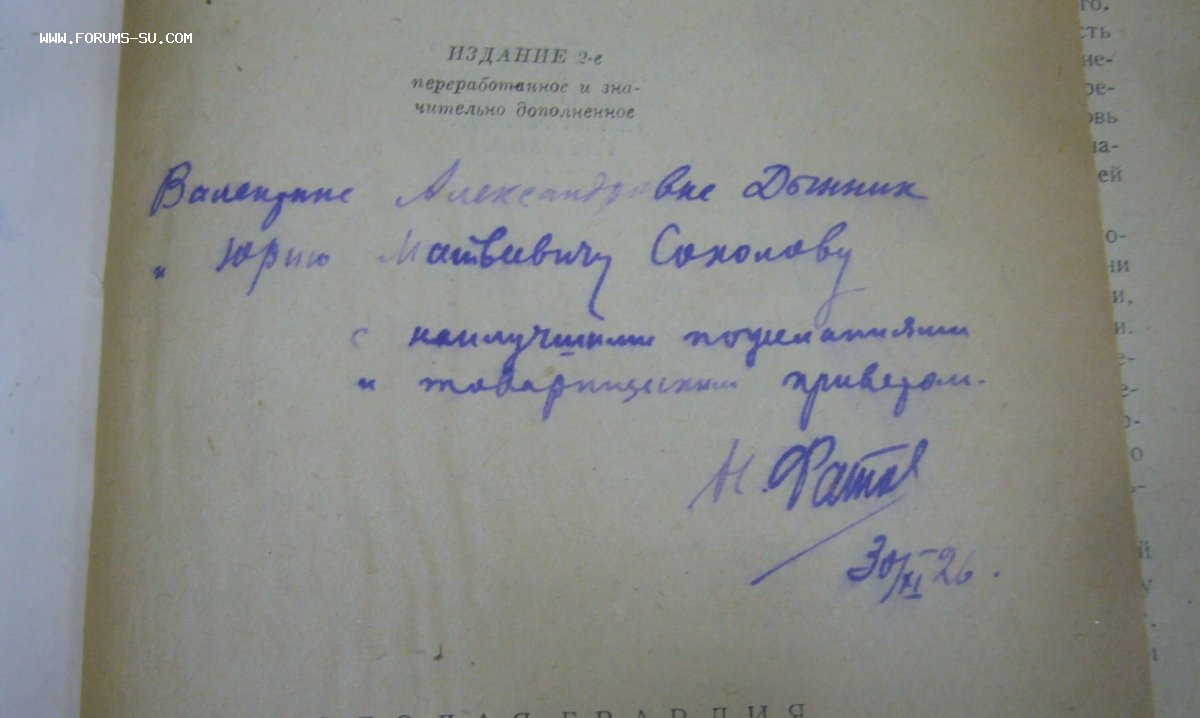 WWW.FORUMS-SU.COM
ИЗДАНИЕ 2-е
переработанное и зна-
чительно дополненное
Валентине Александровне Дынник
и Юрию Матвеевичу Соколову
с наилучшими пожеланиями
и товарищеским приветом.
Н. Фатов
30/XI 26.
ГВАРДИЯ